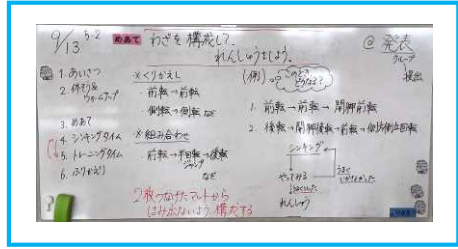 9/13 5-2 めあて わざを構成して、
れんしゅうをしよう。
@ 発表
グループ
提出
1. あいさつ
2. 体そう&
ウォームアップ
3. めあて
4. シンキングタイム
5. トレーニングタイム
6. ふりかえり
※くりかえし
・前転→前転
・側転→側転 など
※組み合わせ
・前転→半回転→後転
ジャンプ
など
2枚つなげたマットから
はみ出ないよう、構成する
(例)
1. 前転→前転→開脚前転
2. 後転→開脚後転→前転→
シンキング
やってみる
うまくいった
れんしゅう
うまく
いかなかった